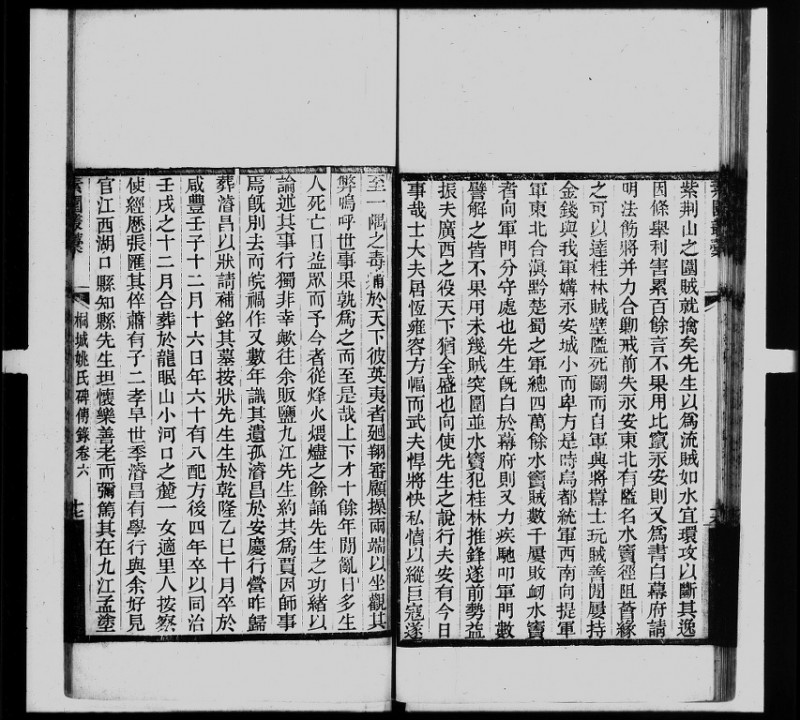 紫荆山之圍賊就擒矣先生以爲流賊如水宜環攻以斷其逸
因條舉利害累百餘言不果用比竄永安則又爲書白幕府請
明法飭將并力合勦戒前失永安東北有隘名水竇徑阻菁緣
之可以達桂林賊壁隘死鬭而自軍興將驕士玩賊善閒屢持
金錢與我軍媾永安城小而卑方是時烏都統軍西南向提軍
軍東北合滇黔楚蜀之軍總四萬餘水竇賊數千屢敗衂水竇
者向軍門分守處也先生旣白於幕府則又力疾馳叩軍門數
譬解之皆不果用未幾賊突圍並水竇犯桂林推鋒遂前勢益
振夫廣西之役天下猶全盛也向使先生之說行夫安有今日
事哉士大夫居恆雍容方幅而武夫悍將快私憤以縱巨寇遂
至一隅之毒痡於天下彼英夷者廻翔審顧操兩端以坐觀其
弊嗚呼世事果孰爲之而至是哉上下才十餘年閒亂日多生
人死亡日益眾而予今者從烽火煨燼之餘誦先生之功緒以
論述其事行獨非幸歟往余販鹽九江先生約共爲賈因師事
焉旣別去而皖禍作又數年識其遺孤濬昌於安慶行營昨歸
葬濬昌以狀請補銘其墓按狀先生生於乾隆乙巳十月卒於
咸豐壬子十二月十六日年六十有八配方後四年卒以同治
壬戌之十二月合葬於龍眠山小河口之麓一女適里人按察
使經歷張匯其倅蕭有子二孝早世季濬昌有學行與余好見
官江西湖口縣知縣先生坦懷樂善老而彌篤其在九江孟塗
桐城姚氏碑傳錄卷六